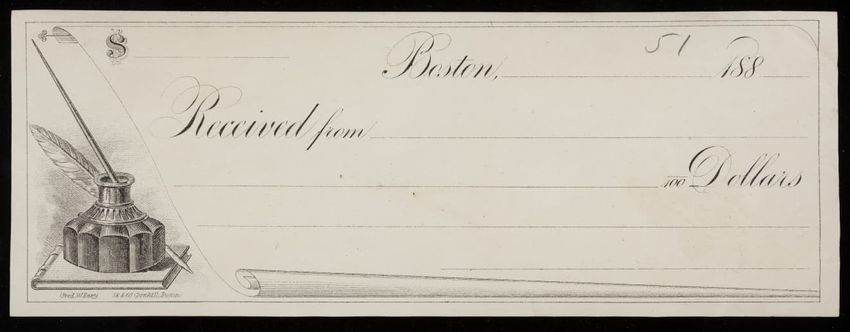 $
Boston, 51 188
Received from
/100 Dollars
Fred. W. Barry Cornhill, Boston